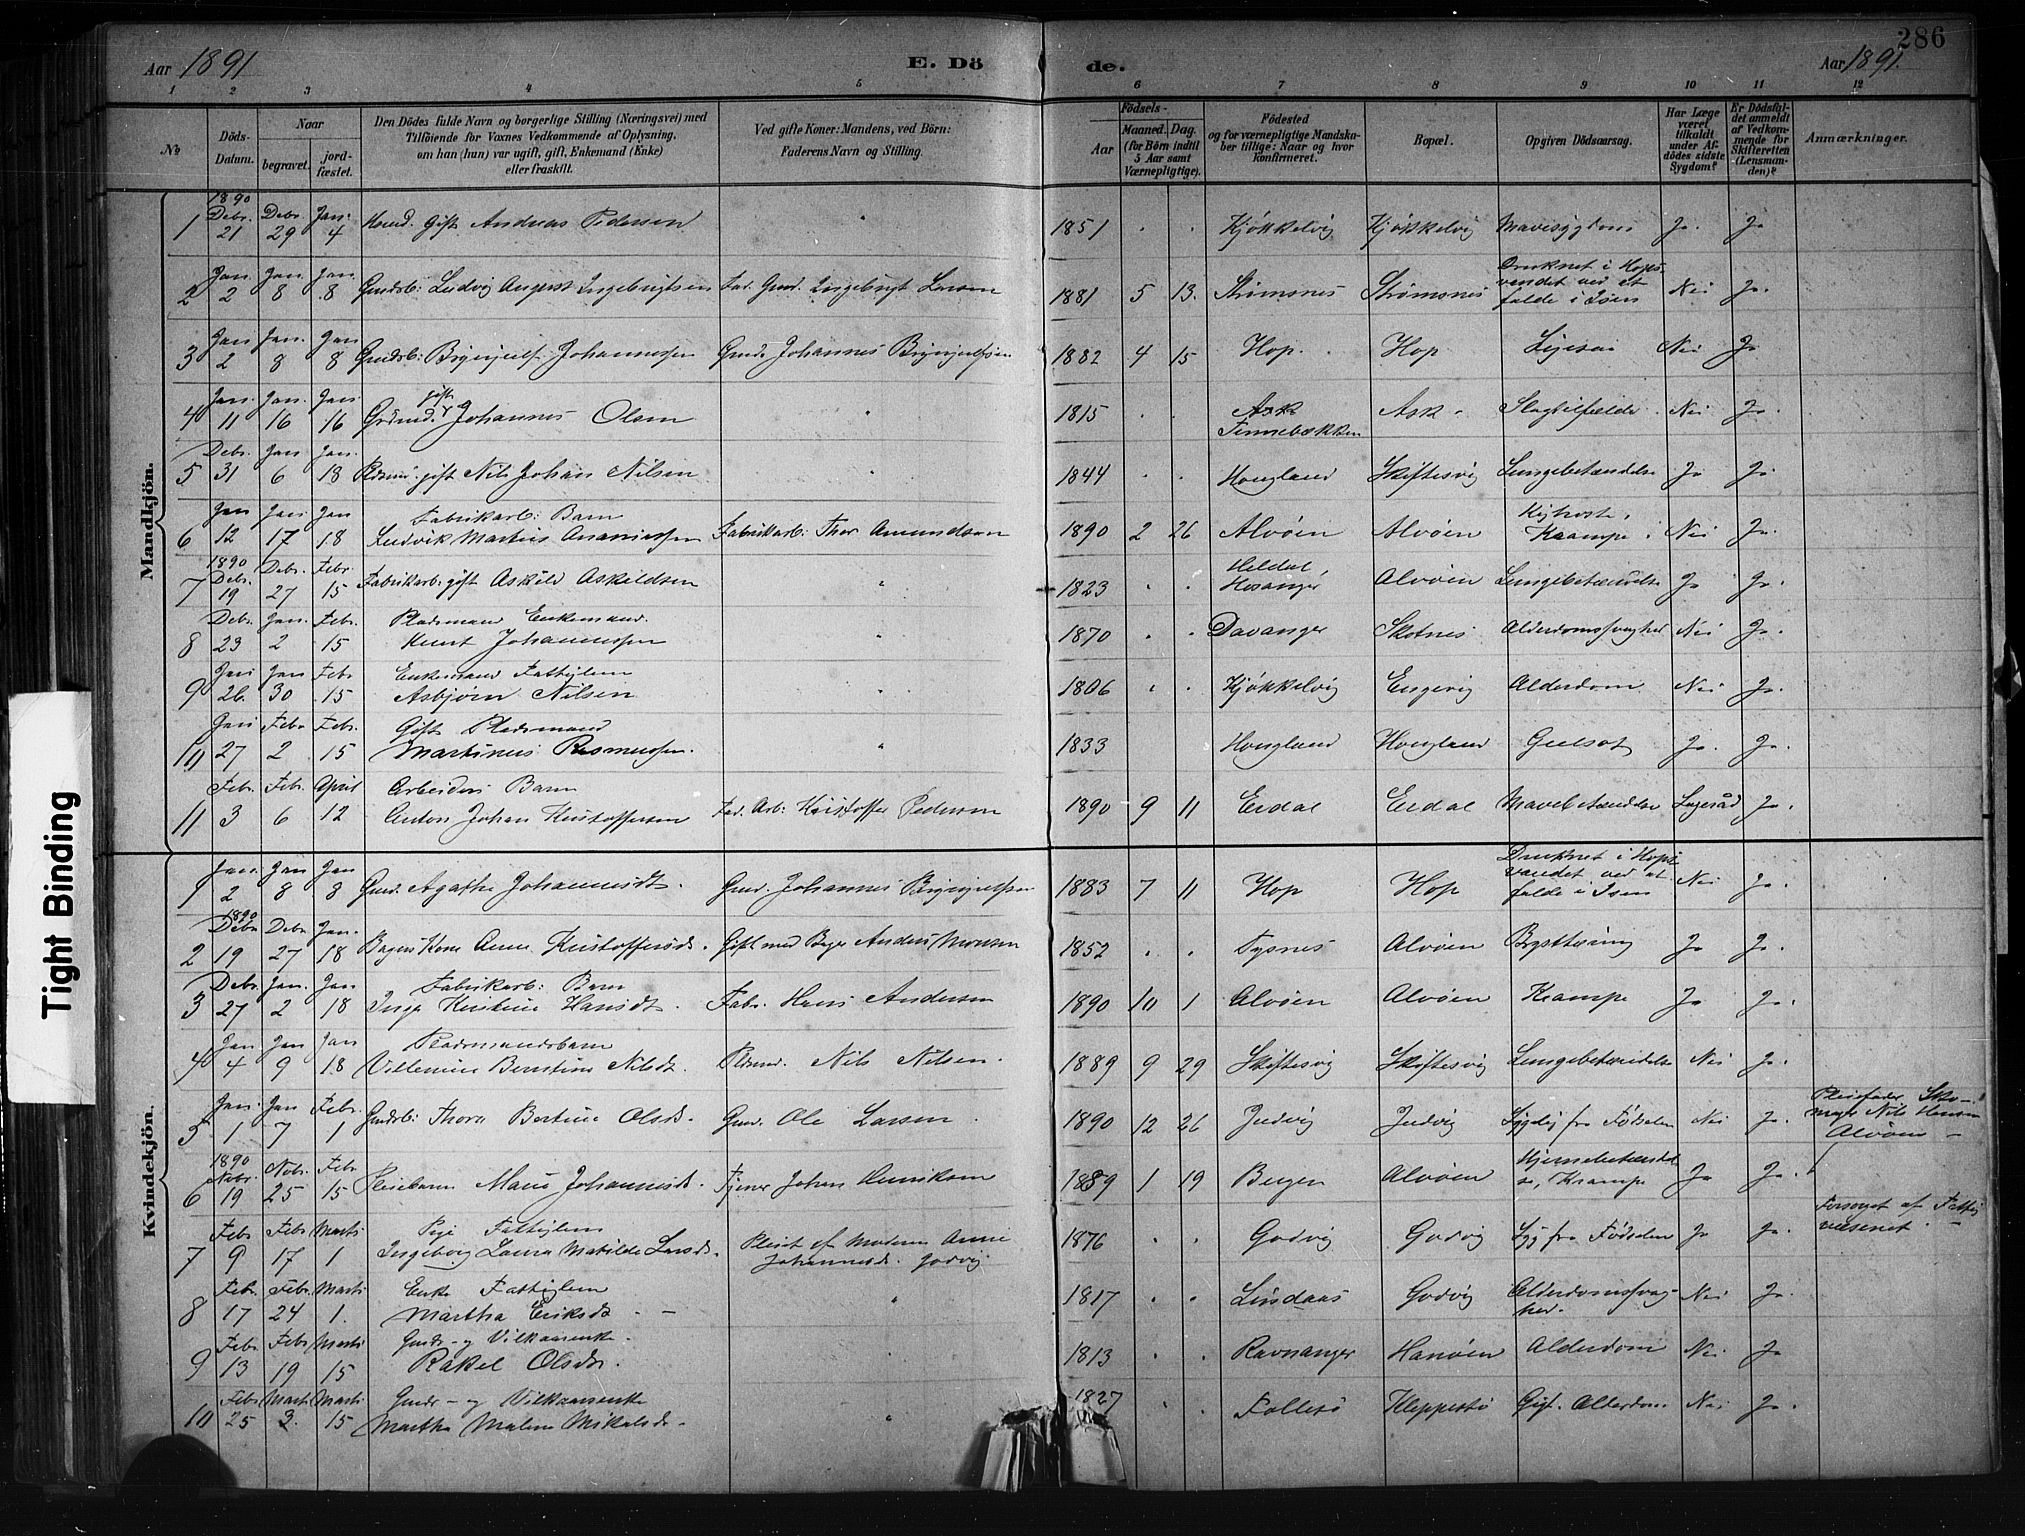 286
Aar 1891 E. Dö de. Aar 1891.
1 2 3 4 5 6 7 8 9 10 11 12
No Döds-Datum. Naar begravet. jordfæstet. Den Dödes fulde Navn og borgerlige Stilling (Næringsvei) med Tilföiende for Voxnes Vedkommende af Oplysning, om han (hun) var ugift, gift, Enkemand (Enke) eller fraskilt. Ved gifte Koner: Mandens, ved Börn: Faderens Navn og Stilling. Aar Födsels- Maaned. Dag. (for Börn indtil 5 Aar samt Værnepligtige). Födested og for værnepligtige Mandskaber tillige: Naar og hvor konfirmeret. Bopæl. Opgiven Dödsaarsag. Har Læge været tilkaldt under Afdödes sidste Sygdom? Er Dödsfaldet anmeldt af Vedkommende for Skifteretten (Lensmanden)? Anmærkninger.
Mandkjön.
1 1890 Debr. 21 Debr. 29 Jan. 4 Gift Andreas Pedersen " 1851 . . Kjøkkelvig Kjøkkelvig Mavesygdom Ja. Ja
2 Jan 2 Jan 8 Jan 8 Gmdsb: Ludvig August Ingebrigtsen Fad. Gmd. Ingebrigt Larsen 1881 5 13. Strømsnes Strømsnes Druknet i Hopsvandet ved at falde i Isen Nei Ja.
3 Jan 2 Jan. 8 Jan 8 Gmdsb: Brynjulf Johannessen Gmd. Johannes Brynjulfsen 1882 4 15 Hop. Hop Ligesaa Nei Ja
4 Jan. 11 Jan. 16 Jan. 16 gift Johannes Olsen " 1815 . . Ask Finnebækken Ask Slagtilfælde Nei Ja.
5 Debr. 31 Jan 6 Jan. 18 Pldsmd. gift Nils Johan Nilsen " 1844 . . Hougland Skiftesvig Lungebetændelse Ja Ja.
6 Jan 12 Jan 17 Jan 18 Fabrikarb: Barn
Ludvik Martius Fabrikarb: Thor Amundsen 1890 2 26 Alvøen Alvøen Kighoste, Krampe Nei Ja.
7 1890 Debr. 19 Debr. 27 Febr. 15 Fabrikarb: gift Askild Askildsen " 1823 . . Heldal, Hosanger Alvøen Lungebetændelse Ja Ja.
8 Debr. 23 Jan. 2 Febr. 15 Pladsmand Enkemand.
Knut Johannessen " 1870 . . Davanger Skotnes Alderdomssvaghed Nei Ja.
9 Jan 26. Jan 30 Feb 15 Enkemand Fattiglem
Asbjørn Nilsen " 1806 . . Kjøkkelvig Engevig Alderdom Nei Ja.
10 Jan 27 Febr 2 Febr. 15 Gift Pladsmand
Martinus Rasmussen. " 1833 Hougland Hougland Gulsot Ja. Ja.
11 Febr. 3 Febr. 6 April 12 Arbeiders Barn
Anton Johan Kristoffersen Fad. Arb: Kristoffer Pedersen 1890 9 11 Erdal Erdal Mavebetændelse Lægeråd Ja.
Kvindekjön.
1 Jan. 2 Jan 8 Jan 8 Gmd. Agathe Johannesdt. Gmd. Johannes Brynjulfsen 1883 7 11 Hop Hop Druknet i Hopsvandet ved at falde i Isen Nei Ja.
2 1890 Debr 19 Debr 27 Jan. 18 Bagers Kone Anne Kristoffersdt. Gift med Bager Anders Monsen 1852 . . Tysnes Alvøen Brysttæring Ja Ja.
3 Debr. 27 Jan. 2 Jan 18 Fabrikarb: Barn
Inga Kristine Hansdt. Fabr. Hans Andersen 1890 10 1 Alvøen Alvøen Krampe Ja Ja.
4 Jan 4 Jan 9 Jan 18 Pladsmandsbarn
Villemine Berntine Nilsdt. Pldsmd. Nils Nilsen. 1889 9 29 Skiftesvig Skiftesvig Lungebetændelse Nei Ja.
5 Jan. 1 Jan 7 Febr. 1 Gmdsb: Thora Bertine Olsdt. Gmd. Ole Larsen 1890 12 26 Judvig Judvig Sygelig fra Fødselen Nei Ja. Pleiefader Skomager Nils Hansen Alvøen
6 1890 Nobr. 19 Nobr. 25 Febr 15 Pleiebarn Marie Johannesdt. Tjener Johan Henriksen 1889 1 19 Bergen Alvøen Hjernebetændelse, Krampe Ja Ja.
7 Febr 9 Febr 17 Marts 1 Pige Fattiglem
Ingeborg Laura Matilde Larsdt. Pleiet af Moderen Anne Johannesdt. Godvig 1876 . . Godvig Godvig Syg fra Fødselen Ja Ja. Forsørget af Fattigvæsenet.
8 Febr. 17 Febr. 24 Marts 1. Enke Fattiglem
Martha Eriksdt. " 1817 . . Lindaas Godvig Alderdomssvaghed. Nei Ja.
9 Febr 13 Febr 19 Marts 15 Gmds- og Vilkaarsenke.
Rakel Olsdr. " 1813 . . Ravnanger Hanøen Alderdom Nei Ja
10 Febr 25 Marts 3. Marts 15 Gmds- og Vilkaarsenke
Martha Malene Mikalsdr. " 1827 . . Follesø Kleppestø Gigt. Alderdom Nei Ja.
Tight Binding